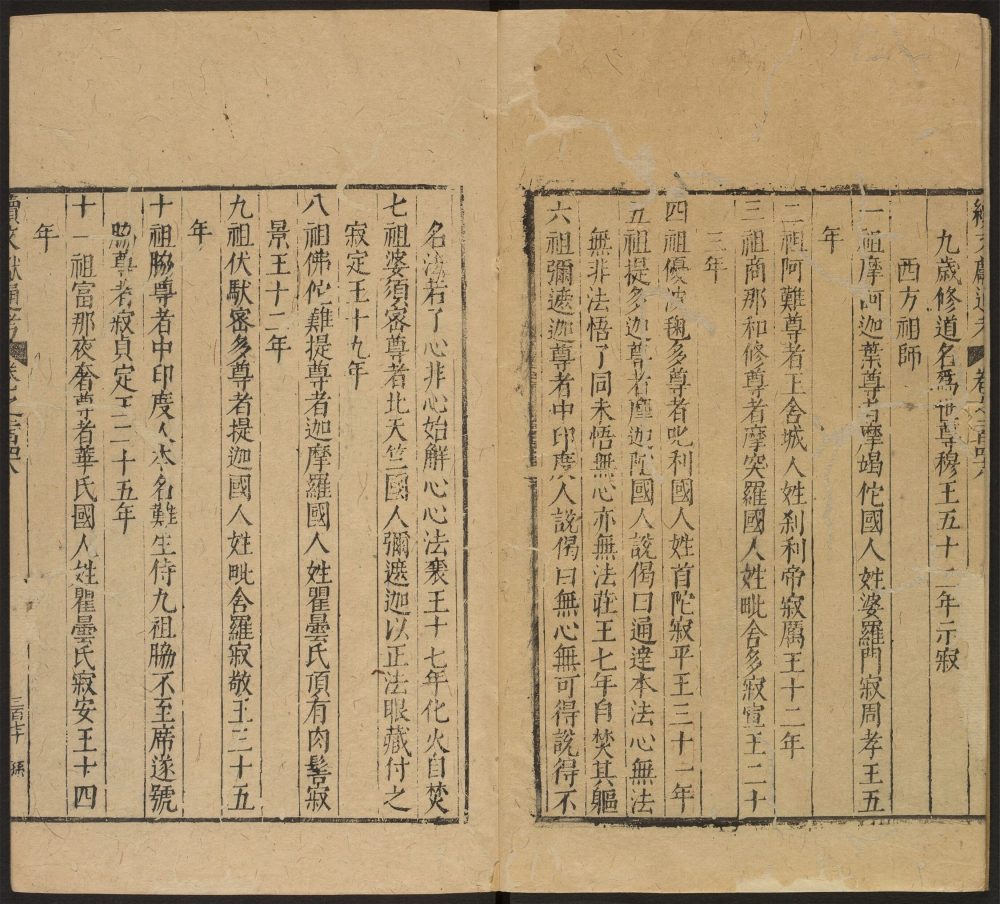 續文獻通考 卷之二百四十八
九歲修道名爲世尊穆王五十二年示寂
西方祖師
一祖摩訶迦葉尊者摩竭佗國人姓婆羅門寂周孝王五
年
二祖阿難尊者王舍城人姓刹利帝寂厲王十二年
三祖商那和修尊者摩突羅國人姓毗舍多寂宣王二十
三年
四祖優波毱多尊者吒利國人姓首陀寂平王三十一年
五祖提多迦尊者摩迦陀國人說偈曰通達本法心無法
無非法悟了同未悟無心亦無法莊王七年自焚其軀
六祖彌遮迦尊者中印度人說偈曰無心無可得說得不
名法若了心非心始解心心法襄王十七年化火自焚
七祖婆須密尊者北天竺國人彌遮迦以正法眼藏付之
寂定王十九年
八祖佛佗難提尊者迦摩羅國人姓瞿曇氏頂有肉髻寂
景王十二年
九祖伏馱密多尊者提迦國人姓毗舍羅寂敬王三十五
年
十祖脇尊者中印度人本名難生侍九祖脇不至席遂號
脇尊者寂貞定王二十五年
十一祖富那夜奢尊者華氏國人姓瞿曇氏寂安王十四
年
續文獻通考 卷之二百四十八